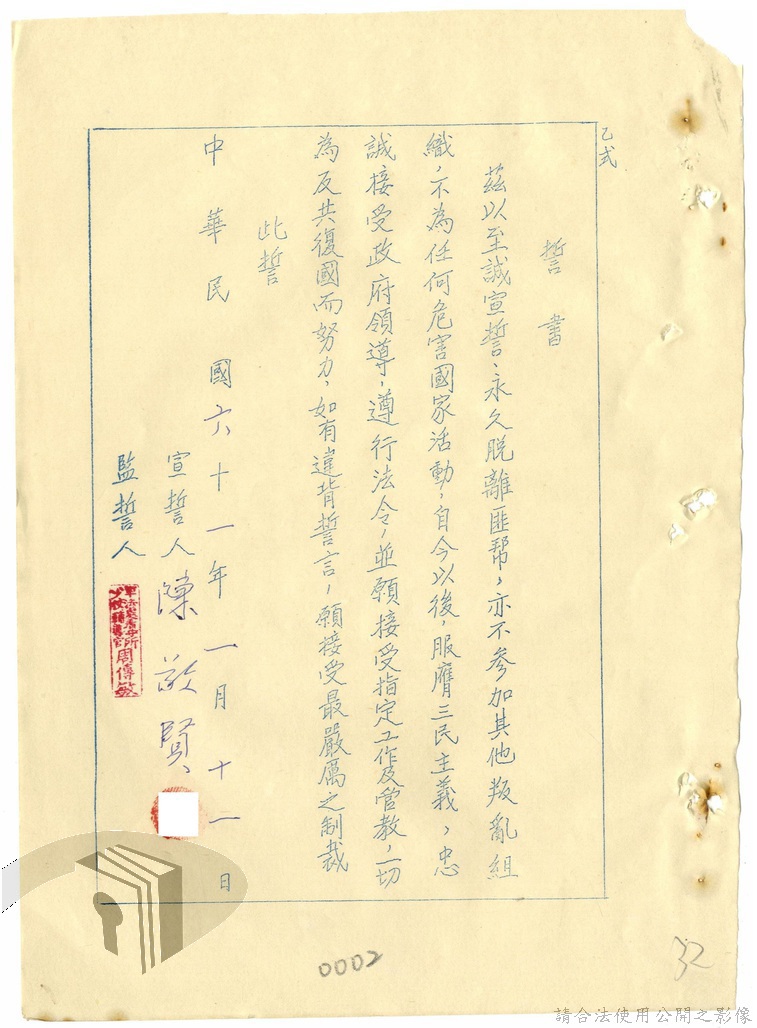 乙式
誓書
茲以至誠宣誓、永久脱離匪幫，亦不參加其他叛亂組
織，不為任何危害國家活動，自今以後，服膺三民主義，忠
誠接受政府領導，遵行法令，並願接受指定工作及管教，一切
為反共復國而努力，如有違背誓言，願接受最嚴厲之制裁
此誓
中華民國六十一年一月十一日
宣誓人 陳敬賢
監誓人
周傳敏
0002
32
請合法使用公開之影像